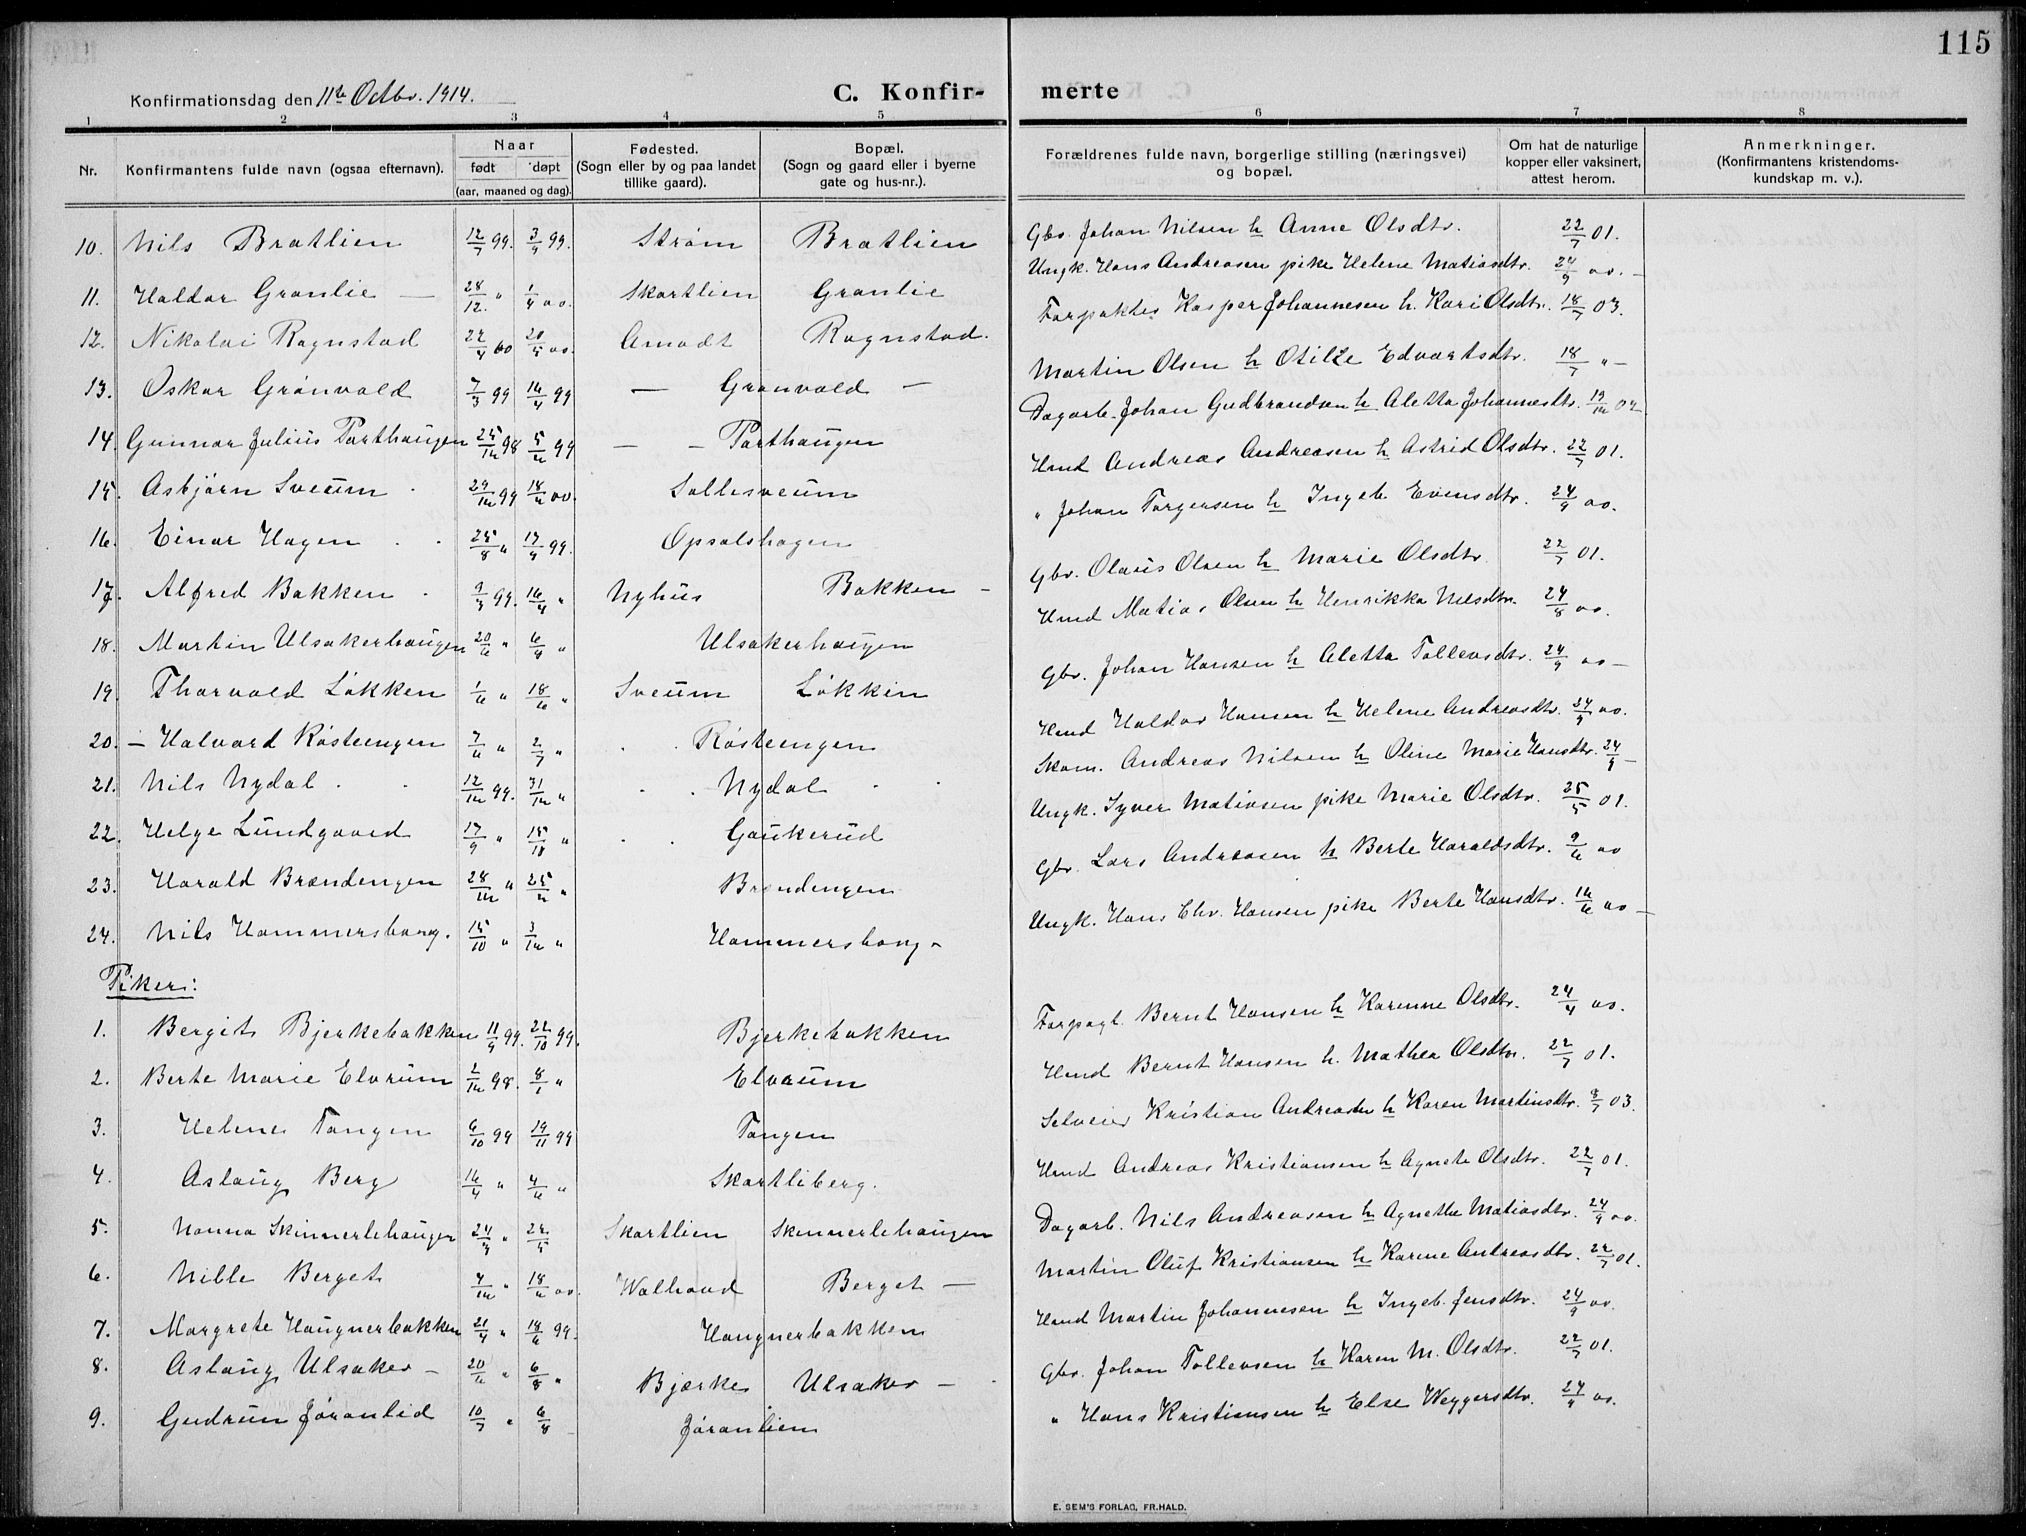 115
Konfirmationsdag den 11te Octbr. 1914. C. Konfir- merte
1 2 3 4 5 6 7 8
Nr. Konfirmantens fulde navn (ogsaa efternavn). Naar født døpt (aar, maaned og dag). Fødested. (Sogn eller by og paa landet tillike gaard). Bopæl. (Sogn og gaard eller i byerne gate og hus-nr.). Forældrenes fulde navn, borgerlige stilling (næringsvei) og bopæl. Om hat de naturlige kopper eller vaksinert, attest herom. Anmerkninger. (Konfirmantens kristendoms- kundskap m. v.).
10. Nils Bratlien 12/7 99. 3/9 99. Strøm Bratlien Gbr. Johan Nilsen h Anne Olsdtr. 22/7 01.
11. Haldor Granlie — 28/12. " 1/4 00. Skartlien Granlie Ungk. Hans Andreasen pike Helene Matiasdtr. 24/9 00. –
12. Nikolai Rognstad 22/4 00 20/5 00. Amodt Rognstad. Forpakter Kasper Johannesen h. Kari Olsdtr. 18/7 03.
13. Oskar Grönvold 7/3 99 16/4 99 — Grønvold — Martin Olsen h Otilie Edvartsdtr. 18/7 " –
14. Gunnar Julius Parthaugen 25/12 98 5/2 99 — – Parthaugen Dagarb. Johan Gudbrandsen h Aletta Johannesdtr. 19/12 02
15. Asbjørn Sveum 29/12 99 18/2 00. Sollesveum Hmd Andreas Andreasen h Astrid Olsdtr. 22/7 01.
16. Einar Hagen 25/8 " 17/9 99. Opsalshagen " Johan Torgersen h Ingeb. Evensdtr. 24/9 00.
17. Alfred Bakken 9/3 99. 16/4 " Nyhus Bakken – Gbr. Olaus Olsen h Marie Olsdtr. 22/7 01.
18. Martin Ulsakerhaugen 20/6 " 6/9 " Ulsakerhaugen Hmd Matias Olsen h Henrikka Nilsdtr. 24/8 00.
19. Thorvald Løkken 1/6 " 18/6 " Sveum Løkken Gbr. Johan Hansen h Aletta Tollevsdtr. 24/9 00 –
20. – Halvard Røsteengen 7/6 " 2/7 " Røsteengen Hmd Haldor Hansen h Helene Andreasdtr. 24/9 00.
21. Nils Nydal 12/12 99. 31/12 " Nydal Skom. Andreas Nilsen h Oline Marie Hansdtr. 24/9 –
22. Helge Lundgaard 17/9 " 15/10 " Gaukerud Ungk. Syver Matiasen pike Marie Olsdtr. 25/5 01.
23. Harald Brændengen 28/12 " 25/2 " Brændengen Gbr. Lars Andreasen h Berte Haraldsdtr. 9/6 00
24. Nils Hammersborg. 15/10 " 3/12 " Hammersborg – Ungk. Hans Chr. Hansen pike Berte Hansdtr. 14/6 00 –
Piker:
1. Bergit Bjerkebakken 11/9 99. 22/10 99. Bjerkebakken Forpagt. Bernt Hansen h Karenne Olsdtr. 24/4 00.
2. Berte Marie Elvrum 2/12 98. 8/1 " Elvrum Hmd Bernt Hansen h. Mathea Olsdtr. 22/7 01.
3. Helene Tangen 6/10 99 19/11 99 Tangen Selveier Kristian Andreasen h Karen Martinsdtr. 8/7 03.
4. Aslaug Berg 16/4 " 4/6 " Skartliberg. Hmd Andreas Kristiansen h Agnete Olsdtr. 22/7 01.
5. Nanna Skinnerlehaugen 24/3 " 22/5 Skartlien Skinnerlehaugen Dagarb. Nils Andreasen h Agnethe Matiasdtr. 24/9 00.
6. Nille Berget 4/12 " 18/2 00. Walhovd Berget — Martin Oluf Kristiansen h Karine Andreasdtr. 22/7 01.
7. Margrete Haugnerbakken 21/4 " 18/6 99. Haugnerbakken Hmd Martin Johannesen h Ingeb. Jensdtr. 24/9 00.
8. Aslaug Ulsaker – 20/6 " 6/8 " Bjærke Ulsaker — Gbr. Johan Tollevsen h Karen M. Olsdtr. 22/7 01.
9. Gudrun Jøranlid 10/7 " 6/8 Jøranlien " Hans Kristiansen h Else Weggersdtr. 24/9 00.
E. SEM'S FORLAG, FR.HALD.